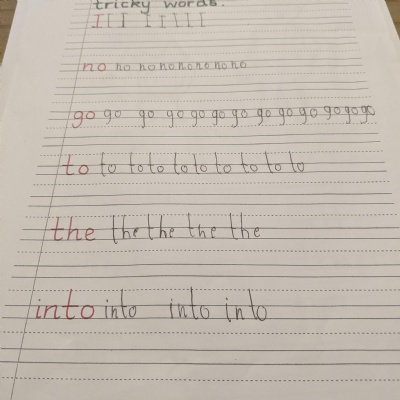 tricky words.
I I I I I I I I
no no no no no no no no
go go go go go go go go go go go go go
to to to to to to to to to to
the the the the the
into into into into